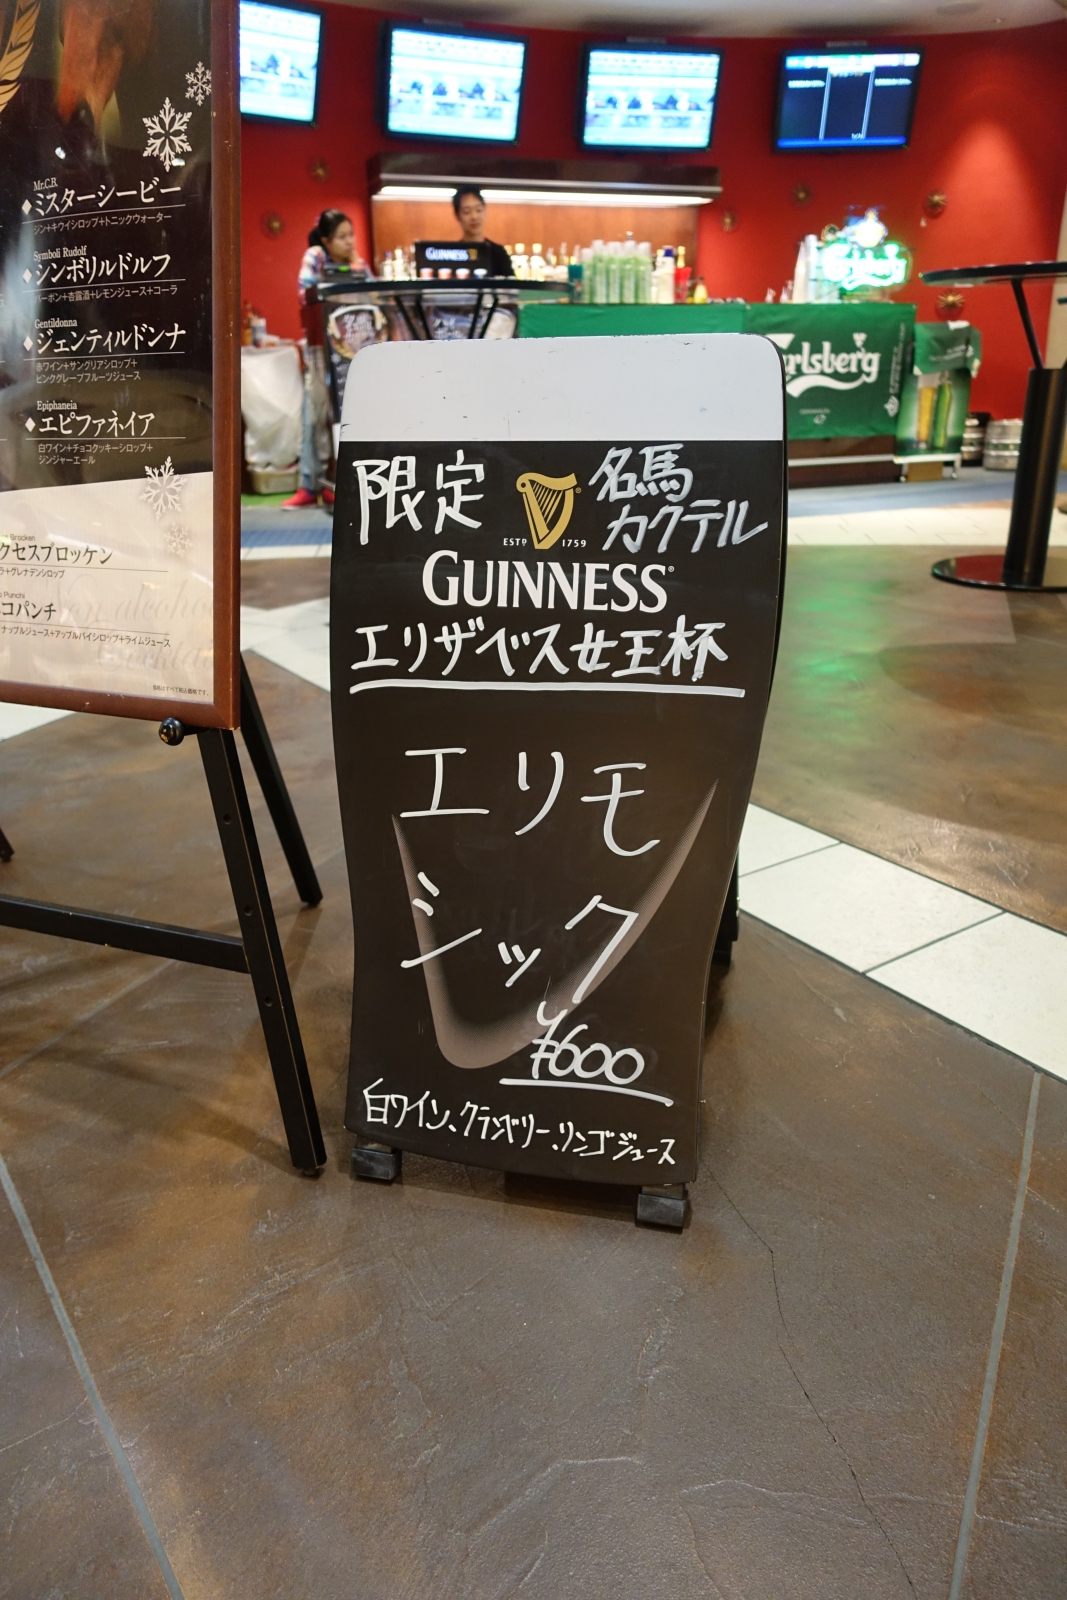 Mr.C.B.
◆ミスターシービー
ジン+キウイシロップ+トニックウォーター
Symboli Rudolf
◆シンボリルドルフ
バーボン+杏露酒+レモンジュース+コーラ
Gentildonna
◆ジェンティルドンナ
赤ワイン+サングリアシロップ+
ピンクグレープフルーツジュース
Epiphaneia
◆エピファネイア
白ワイン+チョコクッキーシロップ+
ジンジャーエール
クセスブロッケン
ラ+グレナデンシロップ
Punchi
コパンチ
ナップルジュース+アップルパイシロップ+ライムジュース
GUINNESS
Carlsberg
arlsberg
限定
名馬
カクテル
ESTD 1759
GUINNESS
エリザベス女王杯
エリモ
シック
¥600
白ワイン、クランベリー、リンゴジュース